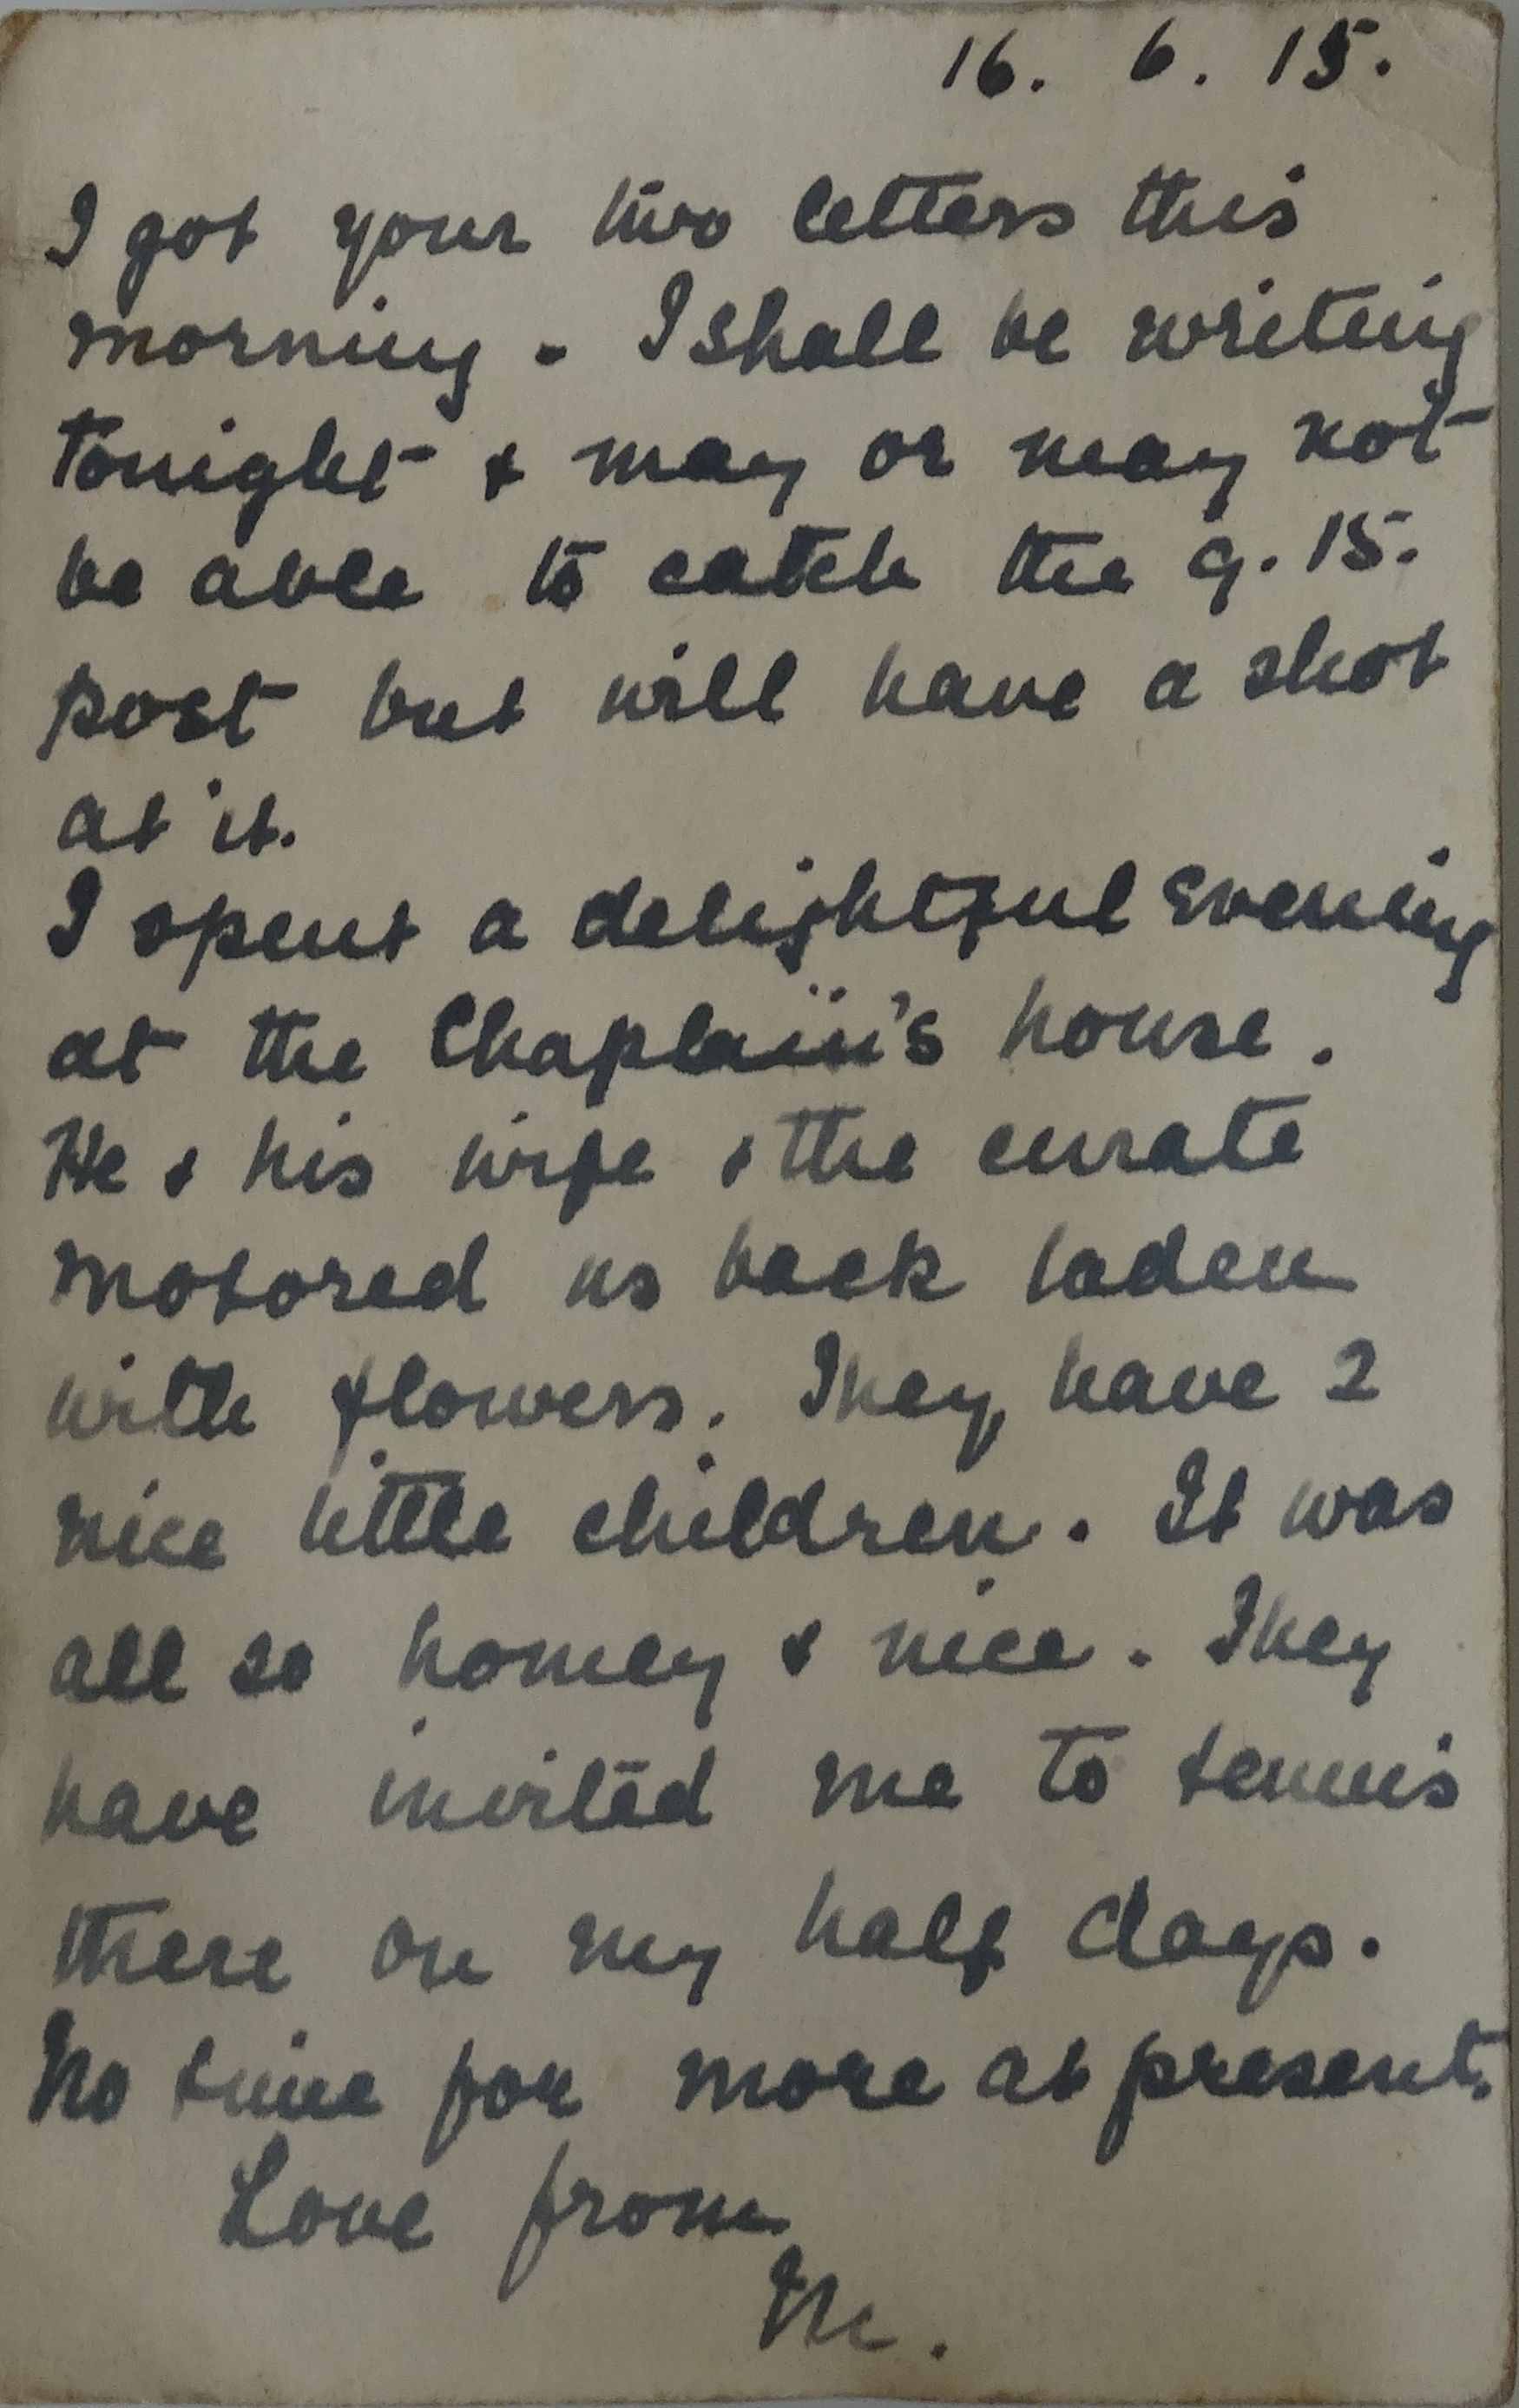 16. 6. 15.
I got your two letters this
morning - I shall be writing
tonight & may or may not
be able to catch the 9.15.
post but will have a shot
at it.
I spent a delightful evening
at the Chaplain's house.
He & his wife & the curate
motored us back laden
with flowers. They have 2
nice little children. It was
all so homey & nice. They
have invited me to tennis
there on my half days.
No time for more at present.
Love from